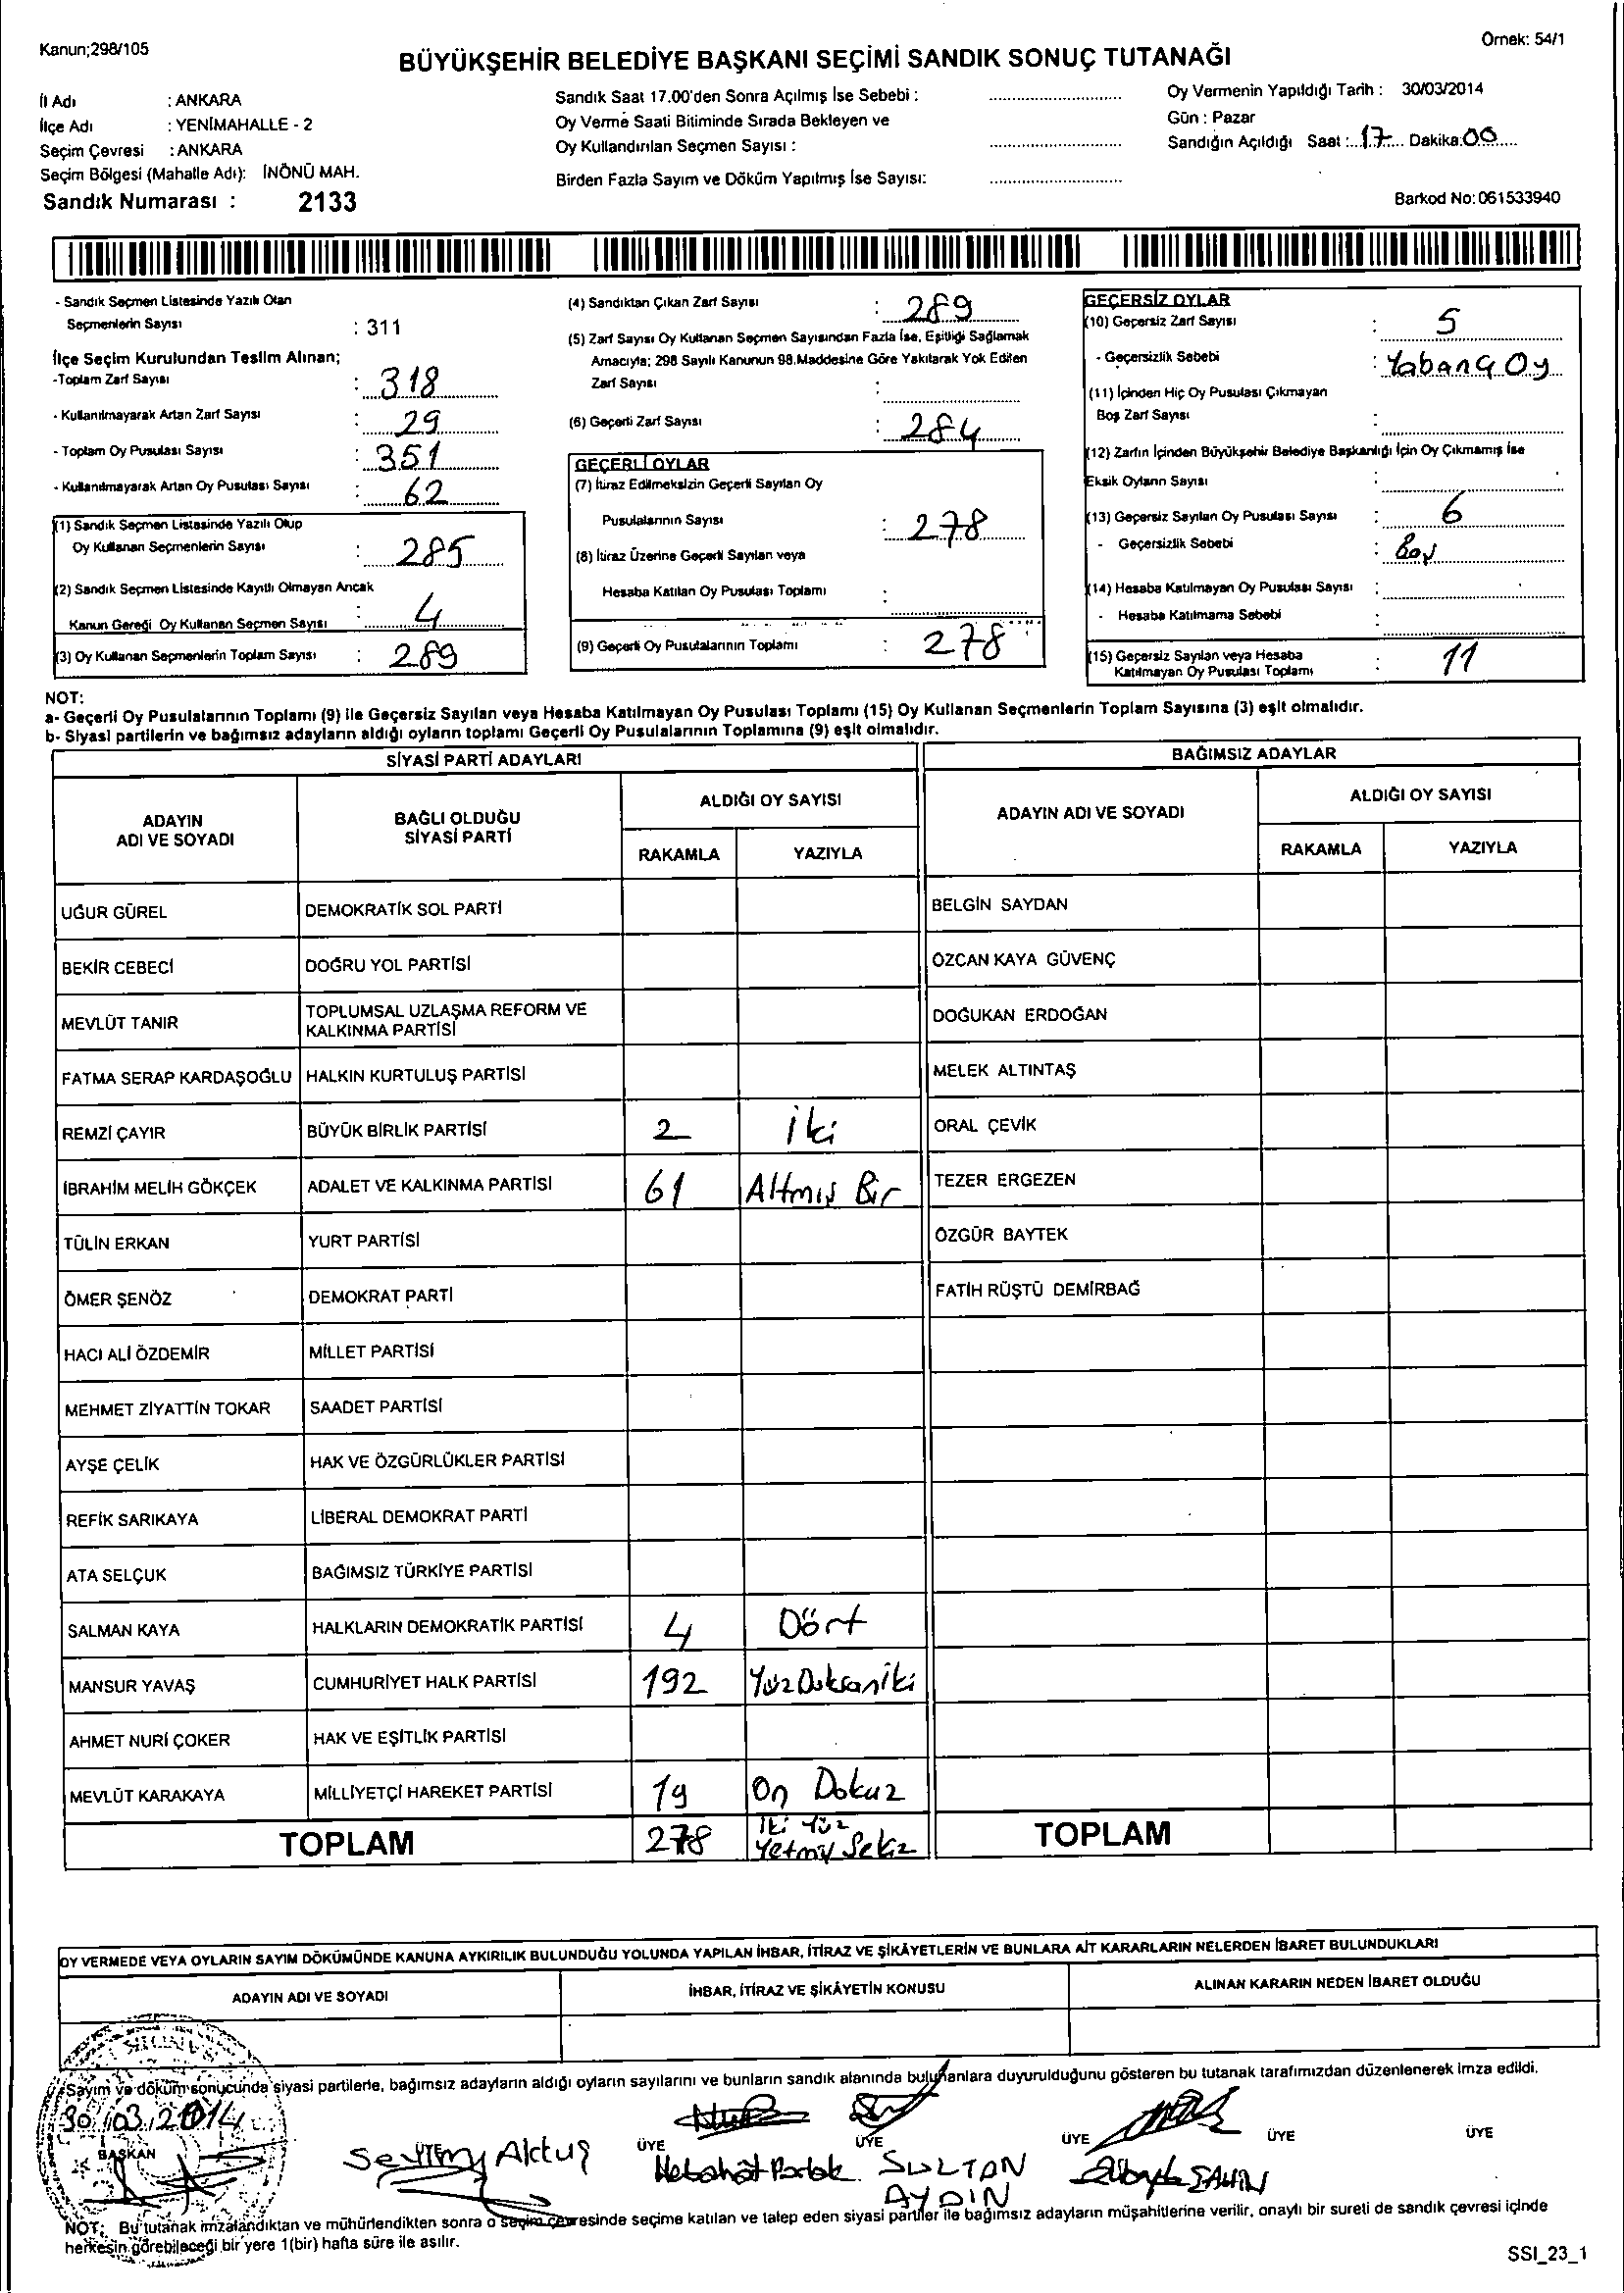 Kanun;298/105
Örnek: 54/1
BÜYÜKŞEHİR BELEDİYE BAŞKANI SEÇİMİ SANDIK SONUÇ TUTANAĞI
İl Adı : ANKARA
İlçe Adı : YENİMAHALLE - 2
Seçim Çevresi : ANKARA
Seçim Bölgesi (Mahalle Adı): İNÖNÜ MAH.
Sandık Numarası : 2133
Sandık Saat 17.00'den Sonra Açılmış İse Sebebi :
Oy Verme Saati Bitiminde Sırada Bekleyen ve
Oy Kullandırılan Seçmen Sayısı :
Birden Fazla Sayım ve Döküm Yapılmış İse Sayısı:
Oy Vermenin Yapıldığı Tarih : 30/03/2014
Gün : Pazar
Sandığın Açıldığı Saat : 17 Dakika: 00
Barkod No: 061533940
- Sandık Seçmen Listesinde Yazılı Olan
Seçmenlerin Sayısı : 311
İlçe Seçim Kurulundan Teslim Alınan;
-Toplam Zarf Sayısı : 318
- Kullanılmayarak Artan Zarf Sayısı : 29
- Toplam Oy Pusulası Sayısı : 351
- Kullanılmayarak Artan Oy Pusulası Sayısı : 62
(1) Sandık Seçmen Listesinde Yazılı Olup
Oy Kullanan Seçmenlerin Sayısı : 285
(2) Sandık Seçmen Listesinde Kayıtlı Olmayan Ancak
Kanun Gereği Oy Kullanan Seçmen Sayısı : 4
(3) Oy Kullanan Seçmenlerin Toplam Sayısı : 289
(4) Sandıktan Çıkan Zarf Sayısı : 289
(5) Zarf Sayısı Oy Kullanan Seçmen Sayısından Fazla İse, Eşitliği Sağlamak
Amacıyla; 298 Sayılı Kanunun 98.Maddesine Göre Yakılarak Yok Edilen
Zarf Sayısı :
(6) Geçerli Zarf Sayısı : 284
GEÇERLİ OYLAR
(7) İtiraz Edilmeksizin Geçerli Sayılan Oy
Pusulalarının Sayısı : 278
(8) İtiraz Üzerine Geçerli Sayılan veya
Hesaba Katılan Oy Pusulası Toplamı :
(9) Geçerli Oy Pusulalarının Toplamı : 278
GEÇERSİZ OYLAR
(10) Geçersiz Zarf Sayısı : 5
- Geçersizlik Sebebi : Yabancı Oy
(11) İçinden Hiç Oy Pusulası Çıkmayan
Boş Zarf Sayısı :
(12) Zarfın İçinden Büyükşehir Belediye Başkanlığı İçin Oy Çıkmamış İse
Eksik Oyların Sayısı :
(13) Geçersiz Sayılan Oy Pusulası Sayısı : 6
- Geçersizlik Sebebi : Boş
(14) Hesaba Katılmayan Oy Pusulası Sayısı :
- Hesaba Katılmama Sebebi :
(15) Geçersiz Sayılan veya Hesaba
Katılmayan Oy Pusulası Toplamı : 11
NOT:
a- Geçerli Oy Pusulalarının Toplamı (9) ile Geçersiz Sayılan veya Hesaba Katılmayan Oy Pusulası Toplamı (15) Oy Kullanan Seçmenlerin Toplam Sayısına (3) eşit olmalıdır.
b- Siyasi partilerin ve bağımsız adayların aldığı oyların toplamı Geçerli Oy Pusulalarının Toplamına (9) eşit olmalıdır.
SİYASİ PARTİ ADAYLARI
ADAYIN ADI VE SOYADI
BAĞLI OLDUĞU SİYASİ PARTİ
ALDIĞI OY SAYISI
RAKAMLA YAZIYLA
UĞUR GÜREL DEMOKRATİK SOL PARTİ
BEKİR CEBECİ DOĞRU YOL PARTİSİ
MEVLÜT TANIR TOPLUMSAL UZLAŞMA REFORM VE
KALKINMA PARTİSİ
FATMA SERAP KARDAŞOĞLU HALKIN KURTULUŞ PARTİSİ
REMZİ ÇAYIR BÜYÜK BİRLİK PARTİSİ 2 iki
İBRAHİM MELİH GÖKÇEK ADALET VE KALKINMA PARTİSİ 61 Altmış Bir
TÜLİN ERKAN YURT PARTİSİ
ÖMER ŞENÖZ DEMOKRAT PARTİ
HACI ALİ ÖZDEMİR MİLLET PARTİSİ
MEHMET ZİYATTİN TOKAR SAADET PARTİSİ
AYŞE ÇELİK HAK VE ÖZGÜRLÜKLER PARTİSİ
REFİK SARIKAYA LİBERAL DEMOKRAT PARTİ
ATA SELÇUK BAĞIMSIZ TÜRKİYE PARTİSİ
SALMAN KAYA HALKLARIN DEMOKRATİK PARTİSİ 4 Dört
MANSUR YAVAŞ CUMHURİYET HALK PARTİSİ 192 YüzDoksaniki
AHMET NURİ ÇOKER HAK VE EŞİTLİK PARTİSİ
MEVLÜT KARAKAYA MİLLİYETÇİ HAREKET PARTİSİ 19 On Dokuz
TOPLAM 278 İki Yüz
Yetmiş Sekiz
BAĞIMSIZ ADAYLAR
ADAYIN ADI VE SOYADI
ALDIĞI OY SAYISI
RAKAMLA YAZIYLA
BELGİN SAYDAN
ÖZCAN KAYA GÜVENÇ
DOĞUKAN ERDOĞAN
MELEK ALTINTAŞ
ORAL ÇEVİK
TEZER ERGEZEN
ÖZGÜR BAYTEK
FATİH RÜŞTÜ DEMİRBAĞ
TOPLAM
OY VERMEDE VEYA OYLARIN SAYIM DÖKÜMÜNDE KANUNA AYKIRILIK BULUNDUĞU YOLUNDA YAPILAN İHBAR, İTİRAZ VE ŞİKÂYETLERİN VE BUNLARA AİT KARARLARIN NELERDEN İBARET BULUNDUKLARI
ADAYIN ADI VE SOYADI
İHBAR, İTİRAZ VE ŞİKÂYETİN KONUSU
ALINAN KARARIN NEDEN İBARET OLDUĞU
Sayım ve döküm sonucunda siyasi partilerle, bağımsız adayların aldığı oyların sayılarını ve bunların sandık alanında bulunanlara duyurulduğunu gösteren bu tutanak tarafımızdan düzenlenerek imza edildi.
30/03/2014
BAŞKAN ÜYE ÜYE ÜYE ÜYE ÜYE ÜYE
Aktuş
SULTAN
AYDIN
ŞAHİN
NOT: Bu tutanak imzalandıktan ve mühürlendikten sonra o seçim çevresinde seçime katılan ve talep eden siyasi partiler ile bağımsız adayların müşahitlerine verilir, onaylı bir sureti de sandık çevresi içinde
herkesin görebileceği bir yere 1(bir) hafta süre ile asılır.
SSI_23_1